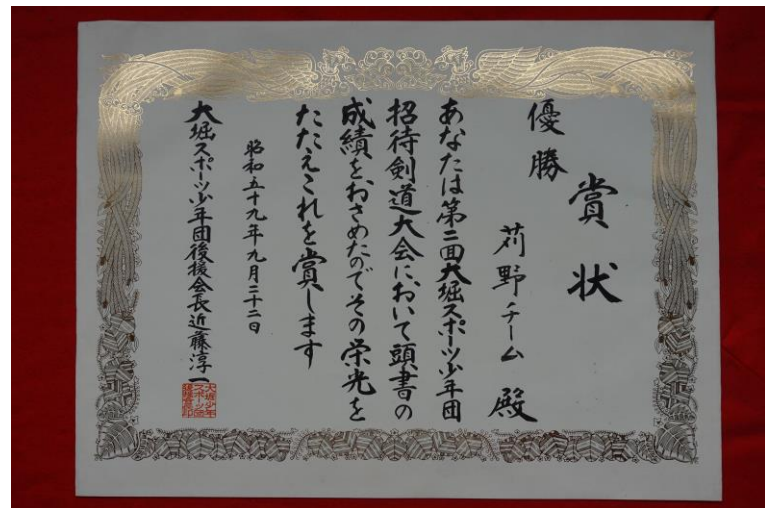 賞状
優勝
苅野チーム殿
あなたは第二回大堀スポーツ少年団
招待剣道大会において頭書の
成績をおさめたのでその栄光を
たたえこれを賞します
昭和五十九年九月二十二日
大堀スポーツ少年団後援会長近藤淳一